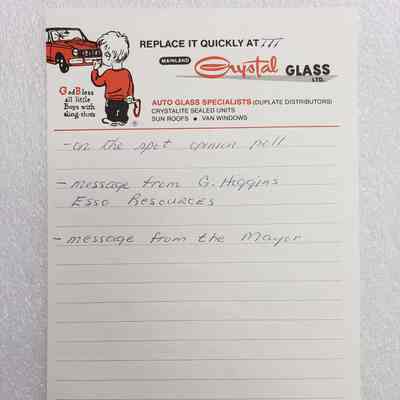 REPLACE IT QUICKLY AT
MAINLAND Crystal GLASS LTD.
God Bless
all little
Boys with
sling-shots
AUTO GLASS SPECIALISTS (DUPLATE DISTRIBUTORS)
CRYSTALITE SEALED UNITS
SUN ROOFS ● VAN WINDOWS
- on the spot opinion poll
- message from G. Higgins
Esso Resources
- message from the Mayor